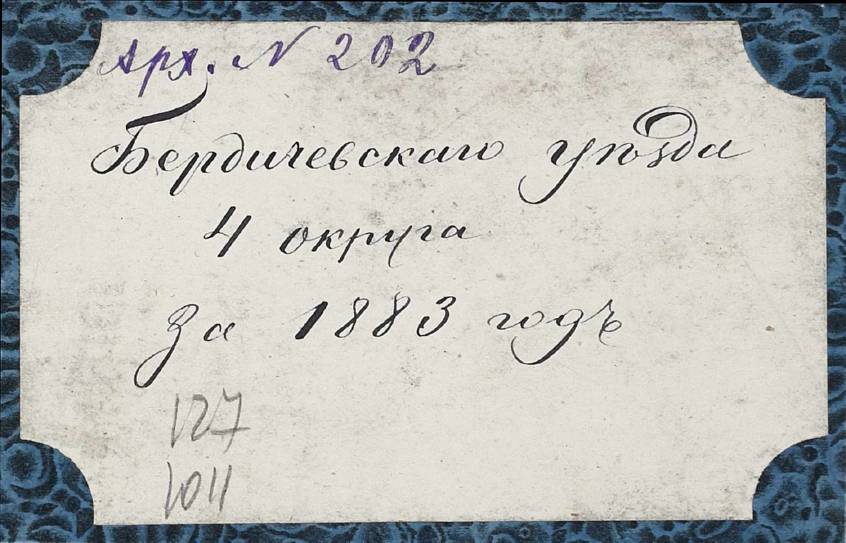 Арх. N 202
Бердичевскаго уѣзда
4 округа
за 1883 годъ
127
1011